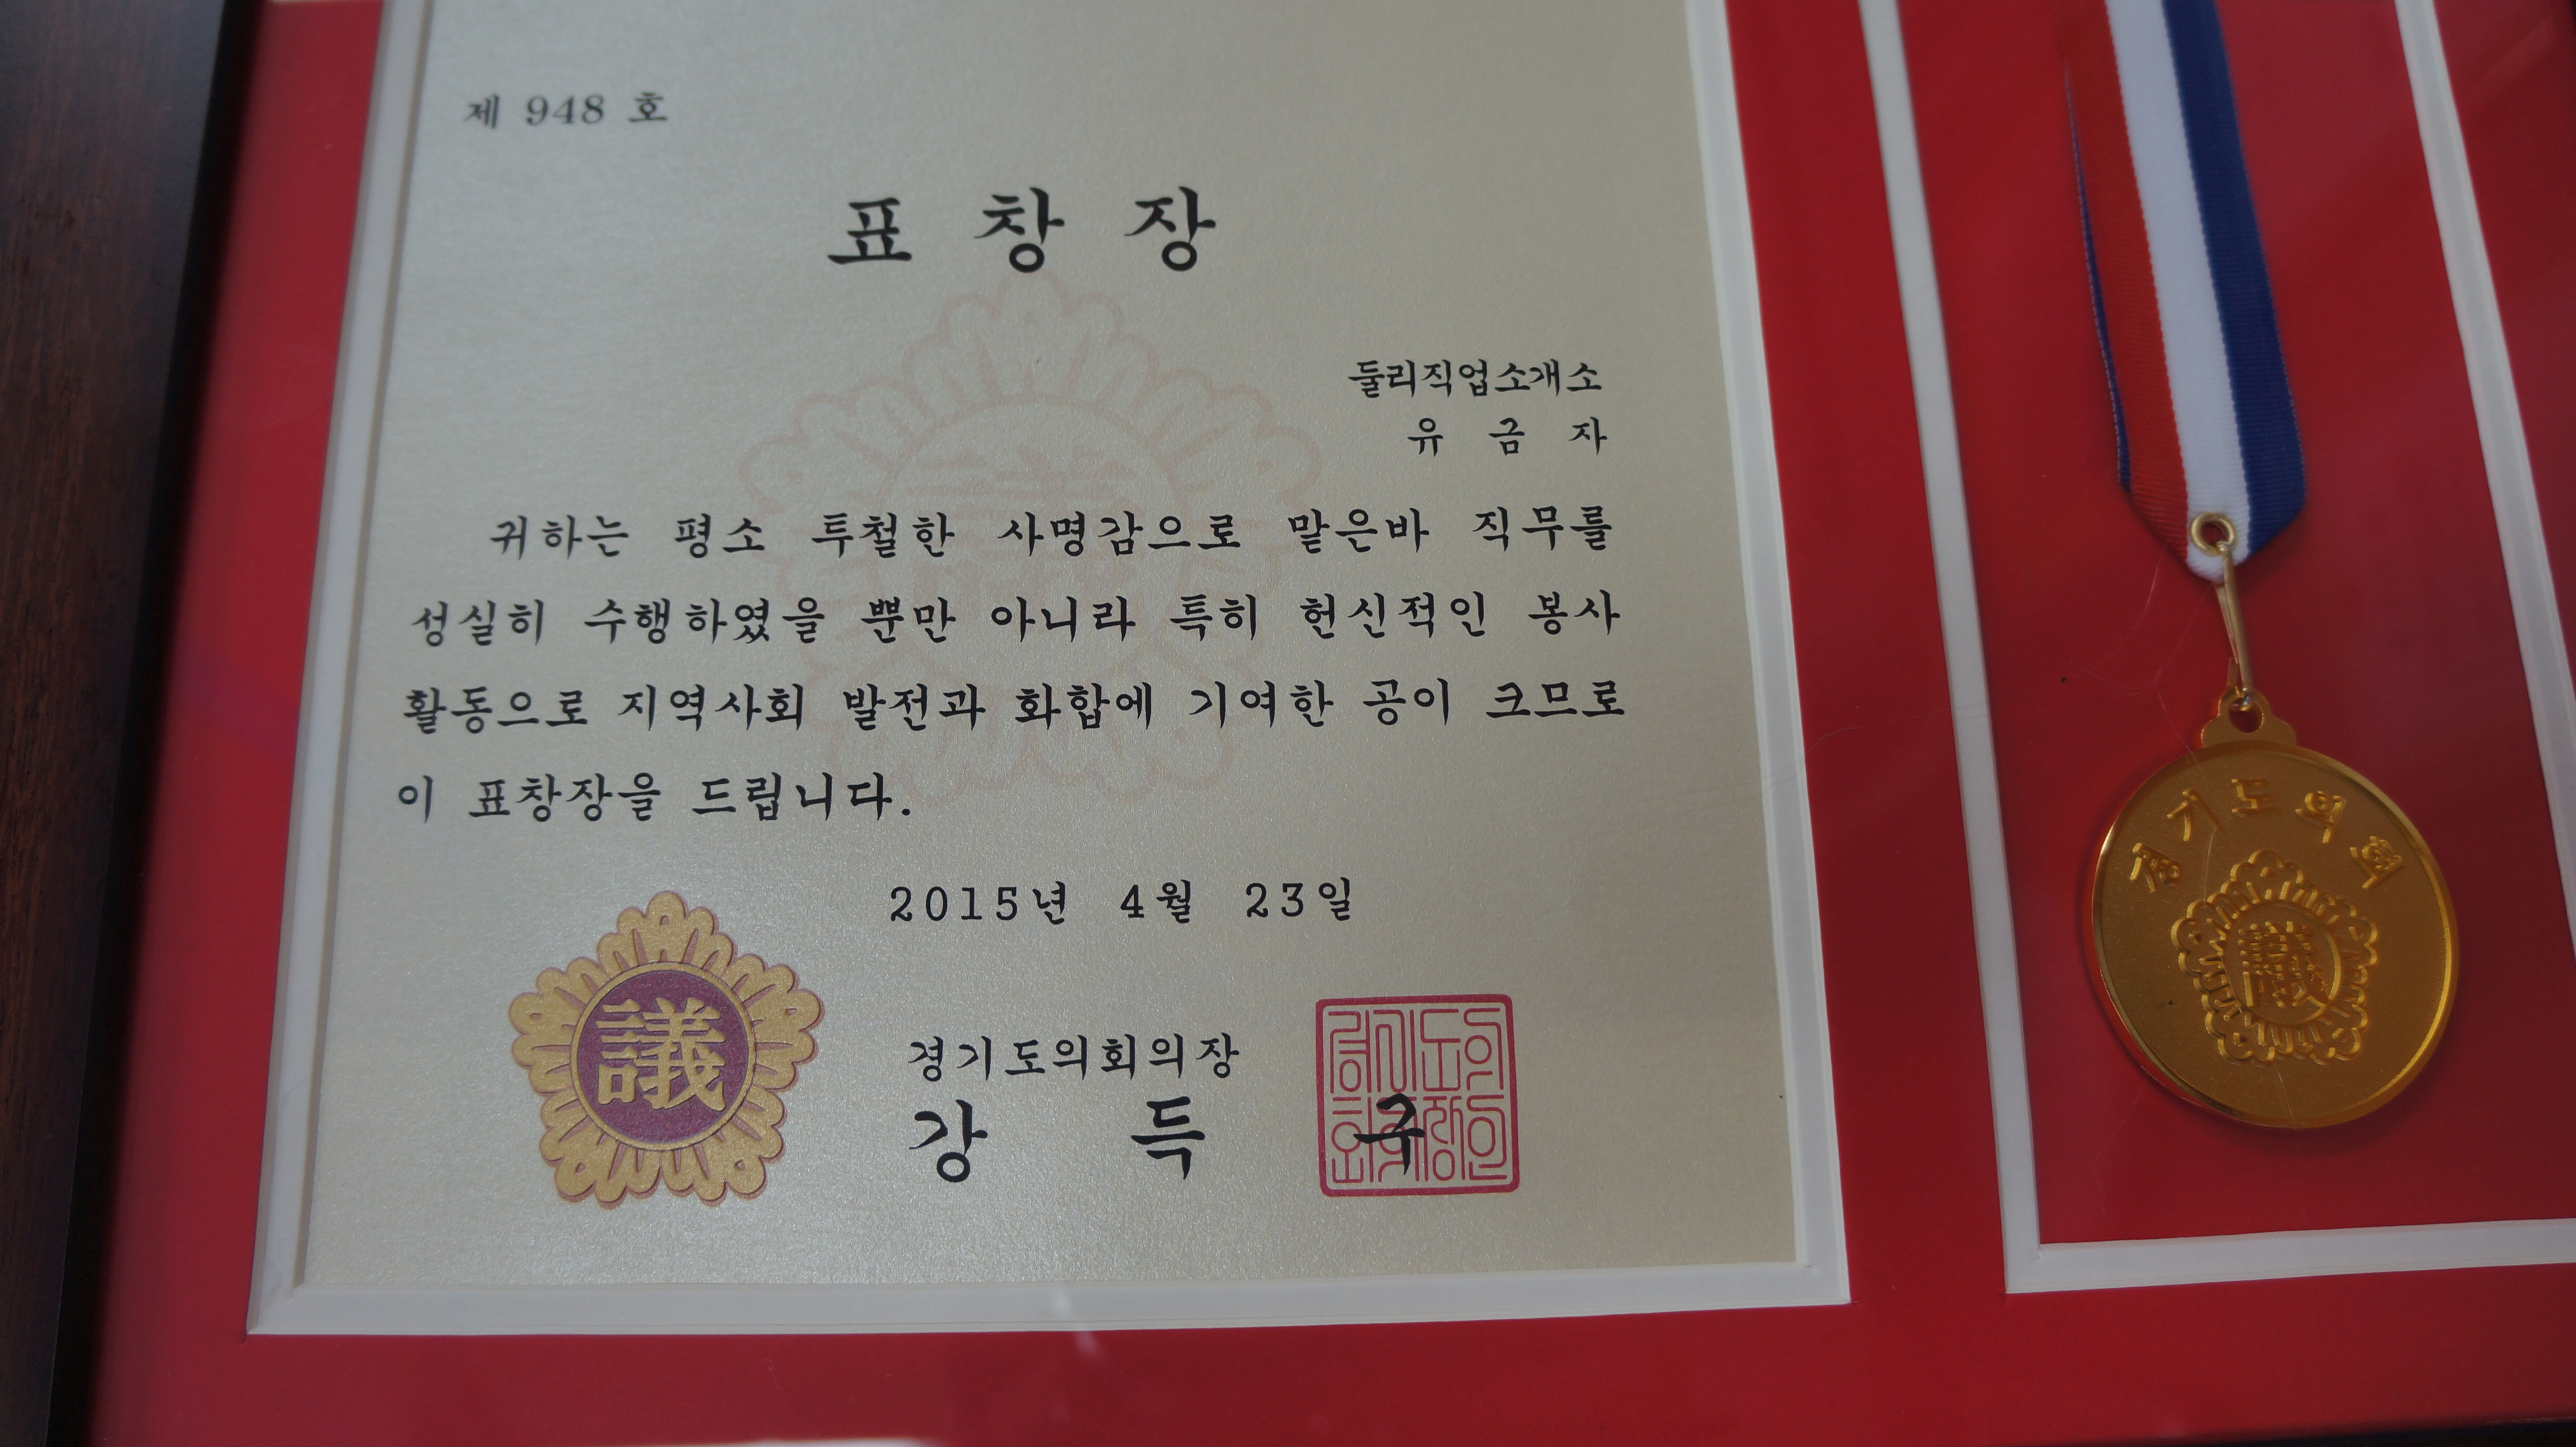 제 948 호
표 창 장
둘리직업소개소
유 금 자
귀하는 평소 투철한 사명감으로 맡은바 직무를
성실히 수행하였을 뿐만 아니라 특히 헌신적인 봉사
활동으로 지역사회 발전과 화합에 기여한 공이 크므로
이 표창장을 드립니다.
2015년 4월 23일
議
경기도의회의장
강 득 구
경기도의회의장인
경기도의회
議